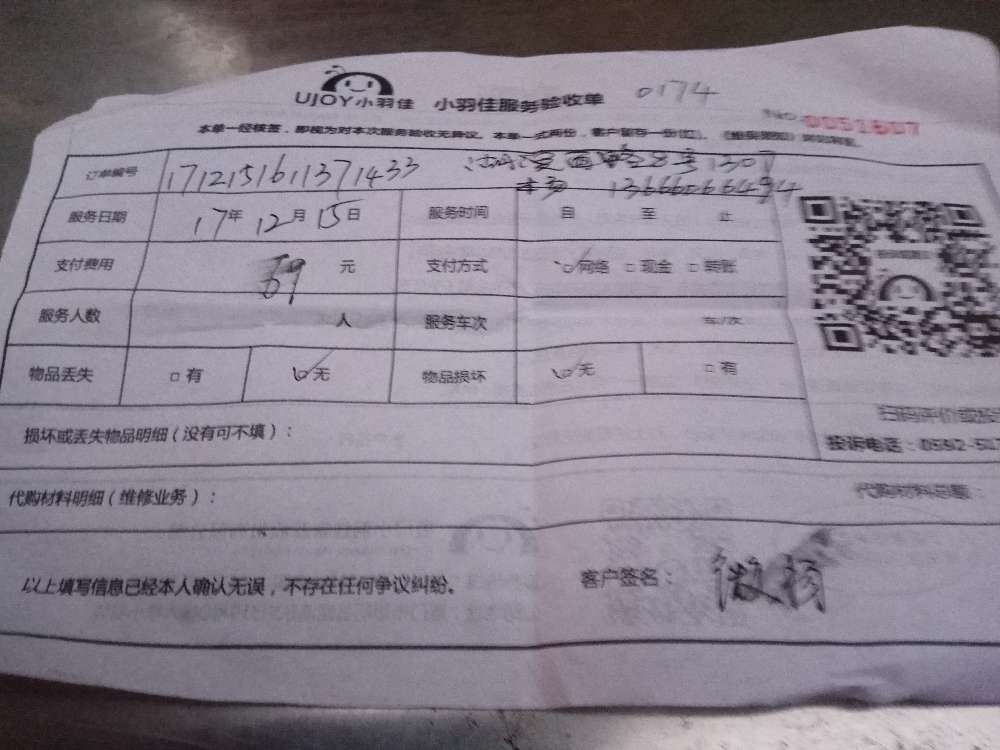 UJOY小羽佳 小羽佳服务验收单 0174
No 0051607
本单一经核签，即视为对本次服务验收无异议。本单一式两份，客户留存一份(红)、
订单编号 1712151611371433 西路8号1307
13666066494
服务日期 17年12月15日 服务时间 自 至 止
支付费用 59 元 支付方式 ☑网络 □现金 □转账
服务人数 人 服务车次 车/次
物品丢失 □有 ☑无 物品损坏 ☑无 □有
扫码评价或投
损坏或丢失物品明细（没有可不填）：
投诉电话：0592-5
代购材料明细（维修业务）： 代购材料总额：
以上填写信息已经本人确认无误，不存在任何争议纠纷。 客户签名：